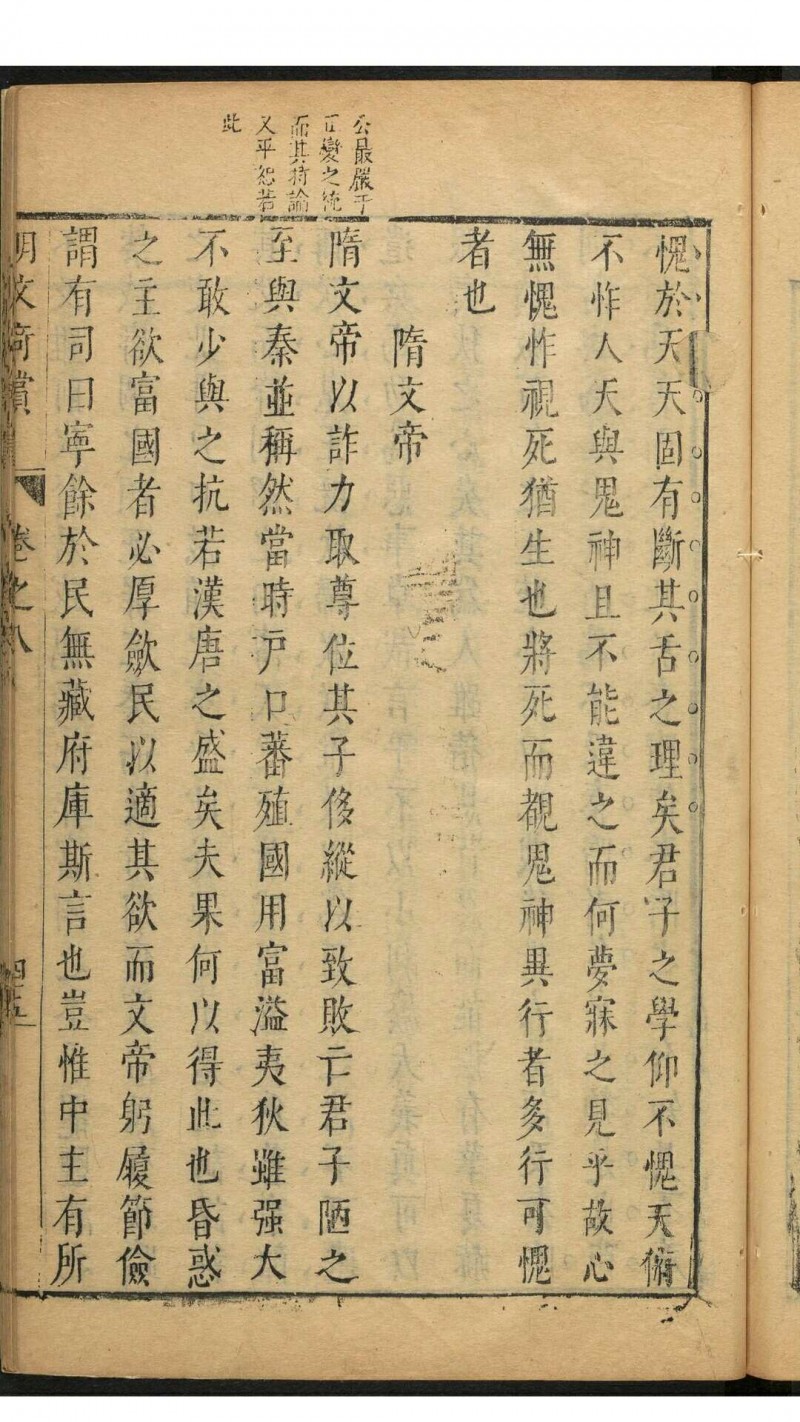 公最嚴于
正變之統
而其持論
又平恕若
此
愧於天天固有斷其舌之理矣君子之學仰不愧天俯
不怍人天與鬼神且不能違之而何夢寐之見乎故心
無愧怍視死猶生也將死而覩鬼神異行者多行可愧
者也
隋文帝
隋文帝以詐力取尊位其子侈縱以致敗亡君子陋之
至與秦並稱然當時戶口蕃殖國用富溢夷狄雖强大
不敢少與之抗若漢唐之盛矣夫果何以得此也昏惑
之主欲富國者必厚歛民以適其欲而文帝躬履節儉
謂有司曰寧餘於民無藏府庫斯言也豈惟中主有所
明文奇賞 卷之八